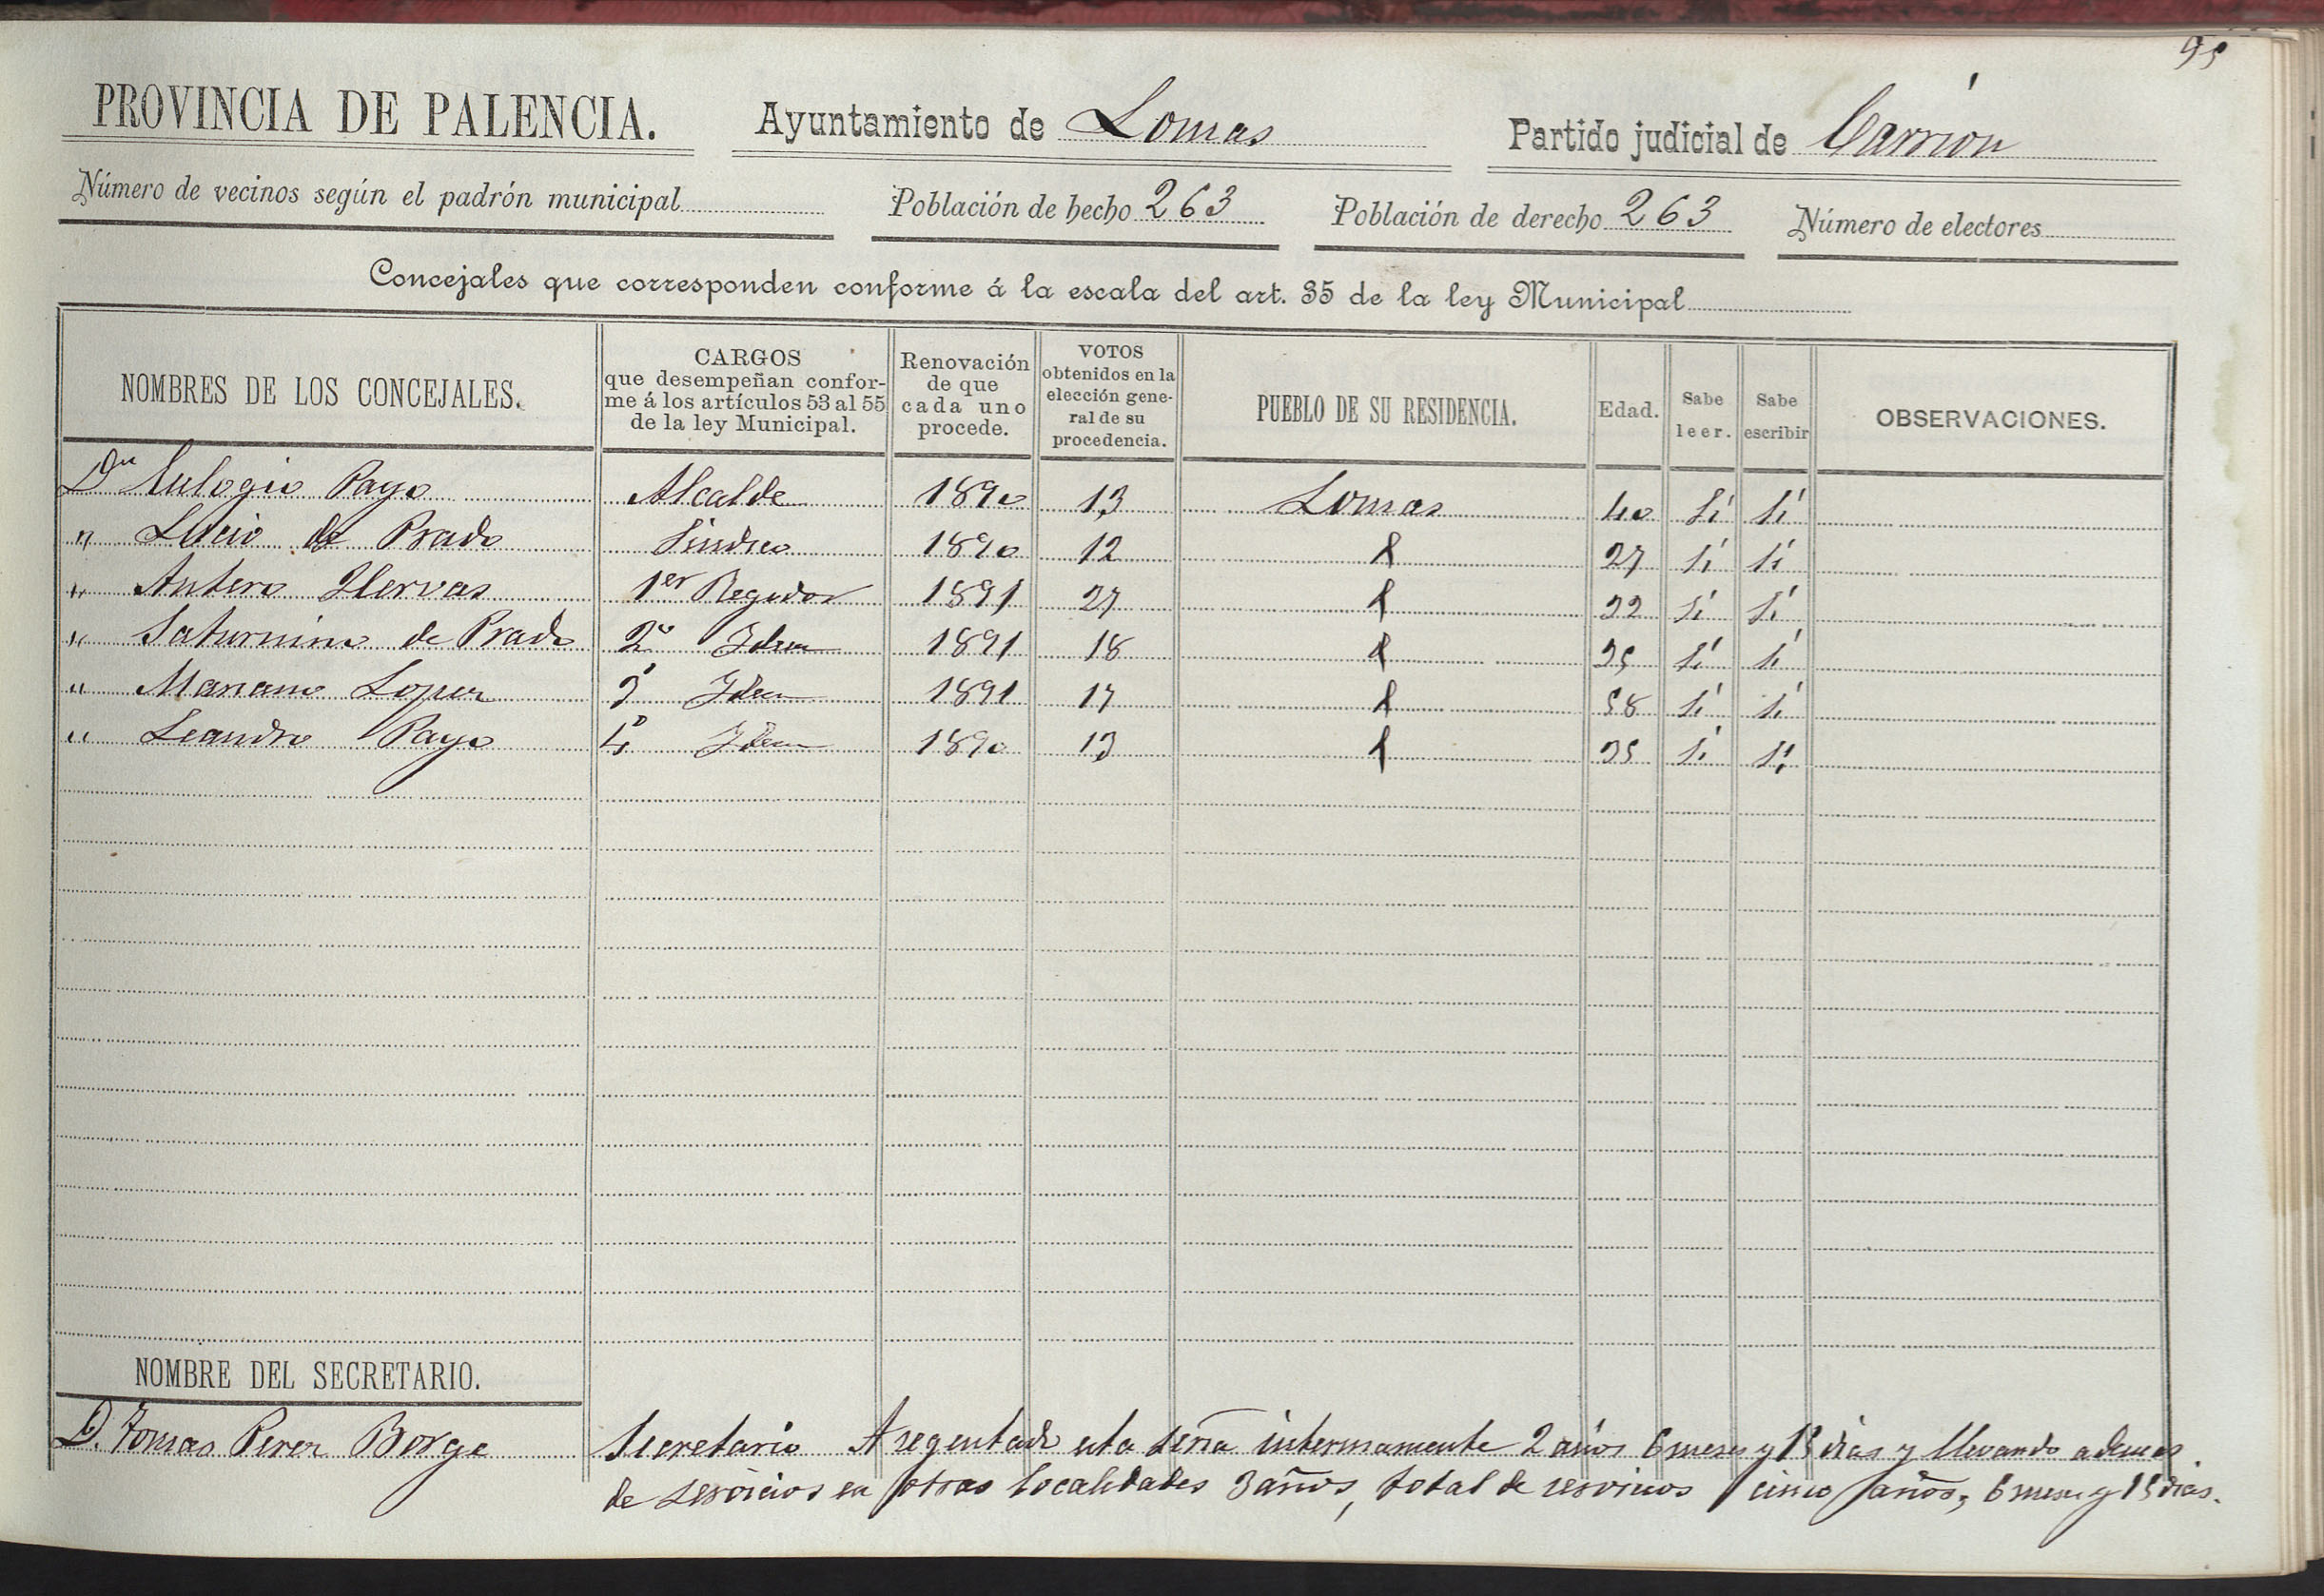 95
PROVINCIA DE PALENCIA. Ayuntamiento de Lomas Partido judicial de Carrión
Número de vecinos según el padrón municipal Población de hecho 263 Población de derecho 263 Número de electores
Concejales que corresponden conforme á la escala del art. 35 de la ley Municipal
NOMBRES DE LOS CONCEJALES. CARGOS que desempeñan conforme á los artículos 53 al 55 de la ley Municipal. Renovación de que cada uno procede. VOTOS obtenidos en la elección general de su procedencia. PUEBLO DE SU RESIDENCIA. Edad. Sabe leer. Sabe escribir OBSERVACIONES.
Dn Eulogio Payo Alcalde 1890 13 Lomas 40 Sí Sí
" Lucio de Prado Síndico 1890 12 27 Sí Sí
" Antero Hervas 1er Regidor 1891 27 32 Sí Sí
" Saturnino de Prado 2º Idem 1891 18 35 Sí Sí
" Mariano Lopez 3º Idem 1891 17 58 Sí Sí
" Leandro Payo 4º Idem 1890 13 35 Sí Sí
NOMBRE DEL SECRETARIO.
D. Tomas Perez Borge Secretario A regentado esta Sería interinamente 2 años 6 meses y 15 dias y llevando ademas
de servicios en otras localidades 3 años, total de servicios cinco años, 6 meses y 15 dias.